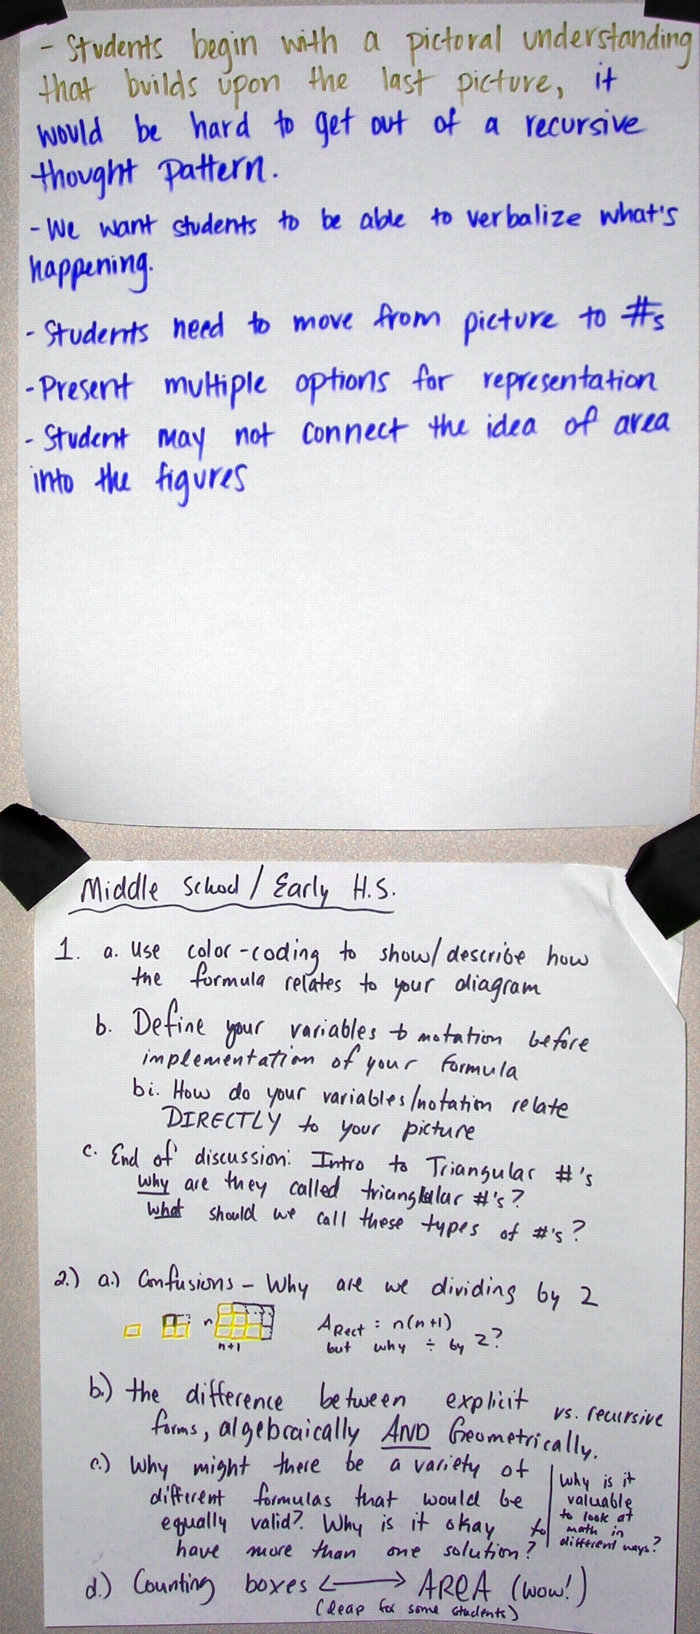 - Students begin with a pictoral understanding
that builds upon the last picture, it
would be hard to get out of a recursive
thought pattern.
- We want students to be able to verbalize what's
happening.
- Students need to move from picture to #s
- Present multiple options for representation
- Student may not connect the idea of area
into the figures
Middle School / Early H.S.
1. a. Use color-coding to show/describe how
the formula relates to your diagram
b. Define your variables & notation before
implementation of your formula
bi. How do your variables/notation relate
DIRECTLY to your picture
c. End of discussion: Intro to Triangular #'s
why are they called triangular #'s?
what should we call these types of #'s?
2.) a.) Confusions - Why are we dividing by 2
n
n+1
ARect = n(n+1)
but why ÷ by 2?
b.) the difference between explicit vs. recursive
forms, algebraically AND Geometrically.
c.) Why might there be a variety of
different formulas that would be
equally valid? Why is it okay to
have more than one solution?
Why is it
valuable
to look at
math in
different ways?
d.) Counting boxes <-> AREA (wow!)
(leap for some students)